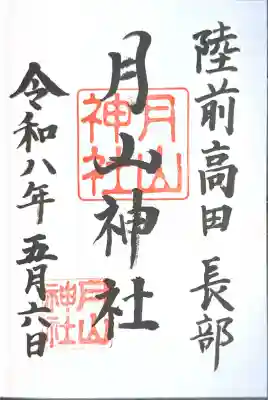 陸前高田 長部
月山神社
月山神社
令和八年五月六日
月山神社